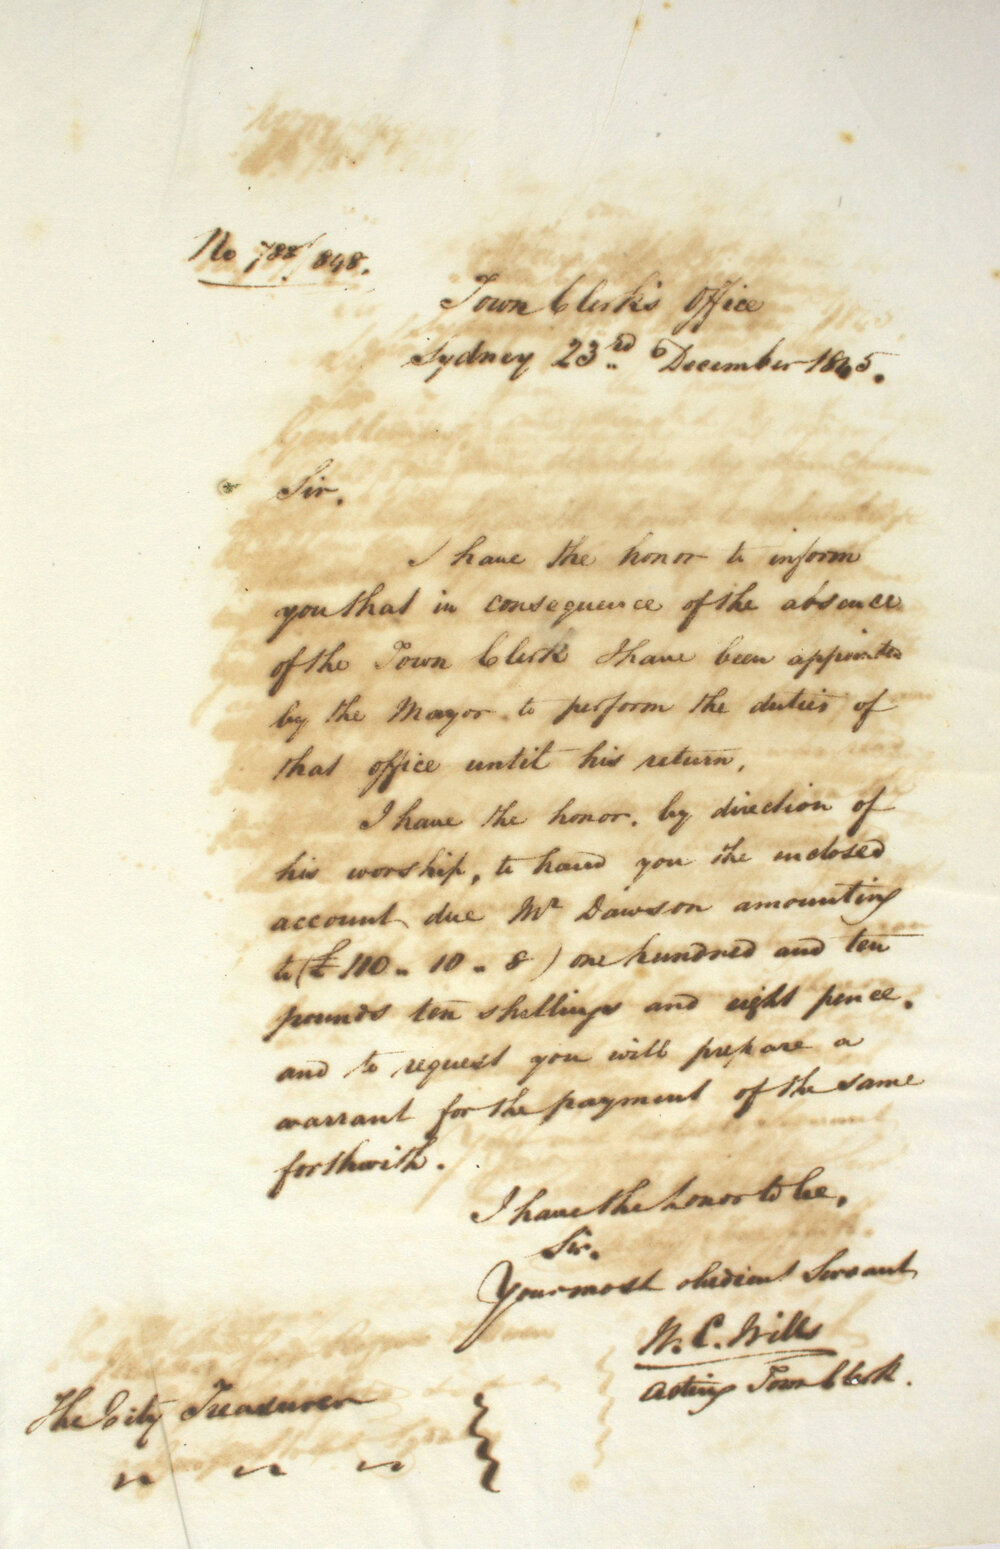 No 788/848.
Town Clerk's Office
Sydney 23rd December 1845.
Sir,
I have the honor to inform
you that in consequence of the absence
of the Town Clerk I have been appointed
by the Mayor to perform the duties of
that office until his return.
I have the honor, by direction of
his worship, to hand you the inclosed
account due Mr Dawson amounting
to (£110 .. 10 .. 8) one hundred and ten
pounds ten shillings and eight pence.
and to request you will prepare a
warrant for the payment of the same
forthwith.
I have the honor to be,
Sir.
Your most obedient Servant
W. C. Wills
Acting Town Clerk.
The City Treasurer